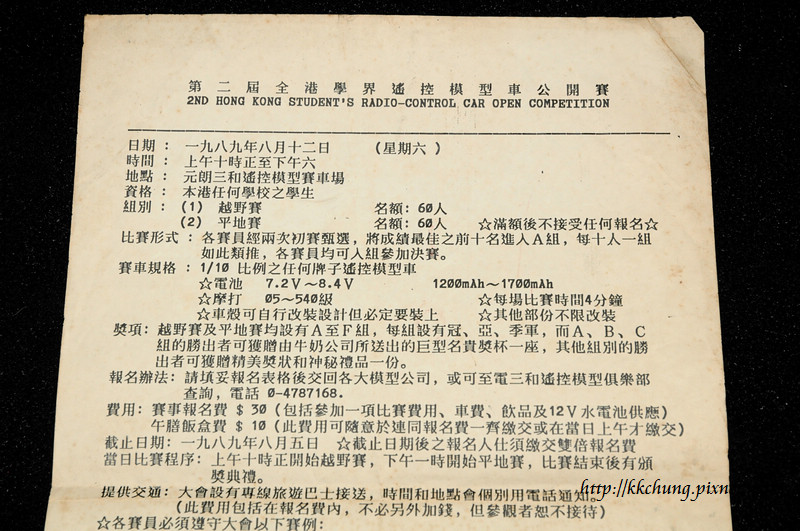 第二屆全港學界遙控模型車公開賽
2ND HONG KONG STUDENT'S RADIO-CONTROL CAR OPEN COMPETITION
日期： 一九八九年八月十二日 （星期六）
時間： 上午十時正至下午六
地點： 元朗三和遙控模型賽車場
資格： 本港任何學校之學生
組別： (1) 越野賽 名額: 60人
(2) 平地賽 名額: 60人 ☆滿額後不接受任何報名☆
比賽形式：各賽員經兩次初賽甄選，將成績最佳之前十名進入A組，每十人一組
如此類推，各賽員均可人組參加決賽。
賽車規格：1/10 比例之任何牌子遙控模型車
☆電池 7.2V～8.4V 1200mAh～1700mAh
☆摩打 05～540級 ☆每場比賽時間4分鐘
☆車殼可自行改裝設計但必定要裝上 ☆其他部份不限改裝
獎項：越野賽及平地賽均設有A至F組，每組設有冠、亞、季軍，而A、B、C
組的勝出者可獲贈由牛奶公司所送出的巨型名貴獎杯一座，其他組別的勝
出者可獲贈精美獎狀和神秘禮品一份。
報名辦法：請填妥報名表格後交回各大模型公司，或可至電三和遙控模型俱樂部
查詢，電話 0-4787168.
費用：賽事報名費 $ 30 (包括參加一項比賽費用、車費、飲品及12V水電池供應)
午膳飯盒費 $ 10 (此費用可隨意於連同報名費一齊繳交或在當日上午才繳交)
截止日期：一九八九年八月五日 ☆截止日期後之報名人仕須繳交雙倍報名費
當日比賽程序：上午十時正開始越野賽，下午一時開始平地賽，比賽結束後有頒
獎典禮。
提供交通：大會設有專線旅遊巴士接送，時間和地點會個別用電話通知。
(此費用包括在報名費內，不必另外加錢，但參觀者恕不接待)
☆各賽員必須遵守大會以下賽例：
http://kkchung.pixn